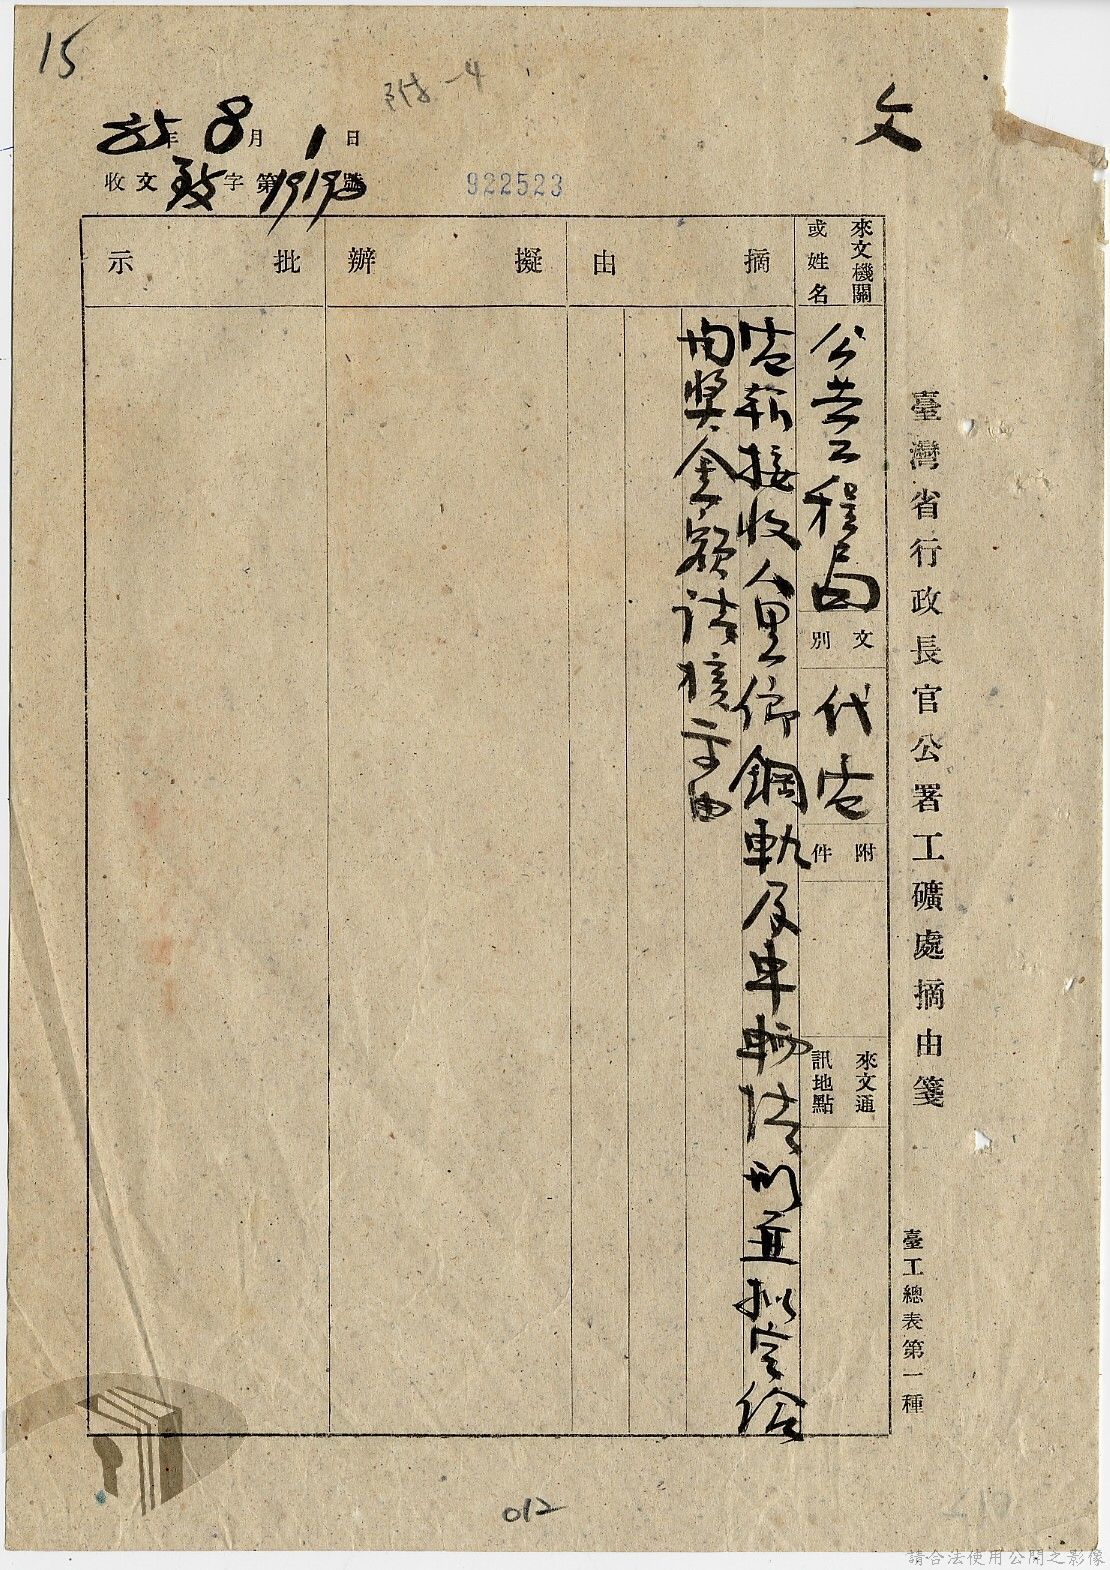 15
附-4
文
35年8月1日
收文致字第19193號
922523
臺灣省行政長官公署工礦處摘由箋
臺工總表第一種
來文機關或姓名
公共工程局
文別
代電
附件
來文通訊地點
摘由
電報接收八里鄉鋼軌及車輛情形並擬定給
獎金額請核示由
擬辦
批示
012
請合法使用公開之影像